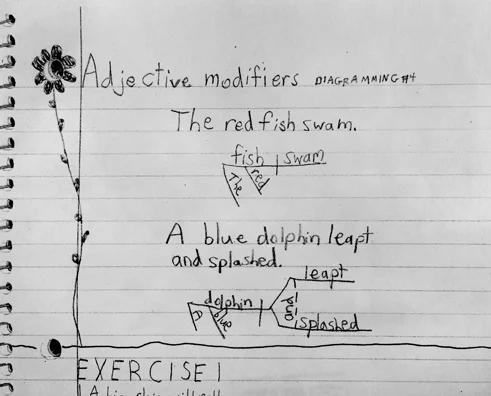 Adjective modifiers DIAGRAMMING #4
The red fish swam.
fish swam
The red
A blue dolphin leapt
and splashed.
leapt
dolphin
A blue and
splashed
EXERCISE 1